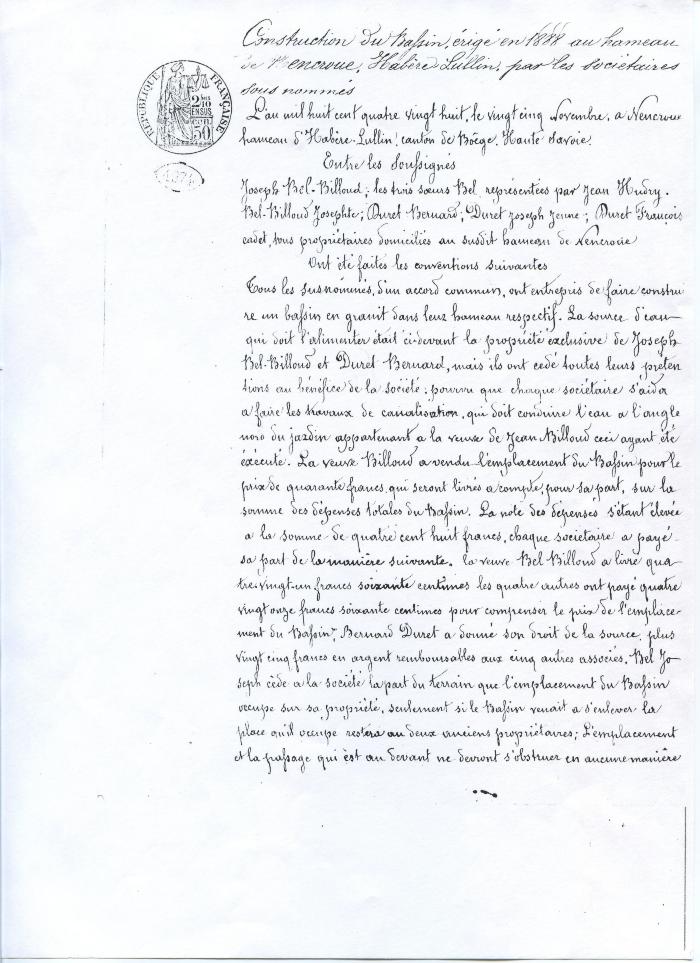 Construction du Bassin, érigé en 1888 au hameau
de Nencroue, Habère-Lullin, par les sociétaires
sous nommés
RÉPUBLIQUE FRANÇAISE
2/10 EN SUS
50c
L'an mil huit cent quatre vingt huit, le vingt cinq Novembre, a Nencroue
hameau d'Habère-Lullin, canton de Boëge. Haute Savoie.
Entre les Soussignés
Joseph Bel-Billoud; les trois sœurs Bel représentées par Jean Hudry.
Bel-Billoud Josephte; Duret Bernard; Duret Joseph jeune; Duret François
cadet, tous propriétaires domiciliés au susdit hameau de Nencroue
Ont été faites les conventions suivantes
Tous les susnommés, d'un accord commun, ont entrepris de faire constru
re un bassin en granit dans leur hameau respectif. La source d'eau
qui doit l'alimenter était ci-devant la propriété exclusive de Joseph
Bel-Billoud et Duret Bernard, mais ils ont cédé toutes leurs préten
tions au bénéfice de la société; pourvu que chaque sociétaire s'aida
a faire les travaux de canalisation, qui doit conduire l'eau a l'angle
nord du jardin appartenant a la veuve de Jean Billoud ceci ayant été
éxécuté. La veuve Billoud a vendu l'emplacement du Bassin pour le
prix de quarante francs, qui seront livrés a compte, pour sa part, sur la
somme des dépenses totales du Bassin. La note des dépenses s'étant élevée
a la somme de quatre cent huit francs, chaque sociétaire a payé
sa part de la manière suivante. la veuve Bel Billoud a livré qua
tre-vingt-un francs soixante centimes les quatre autres ont payé quatre
vingt onze francs soixante centimes pour compenser le prix de l'emplace-
ment du Bassin, Bernard Duret a donné son droit de la source, plus
vingt cinq francs en argent remboursables aux cinq autres associés. Bel Jo
seph cède a la société la part du terrain que l'emplacement du Bassin
occupe sur sa propriété, seulement si le Bassin venait a s'enlever la
place qu'il occupe restera au deux anciens propriétaires; L'emplacement
et la passage qui est au devant ne devront s'obstruer en aucune manière